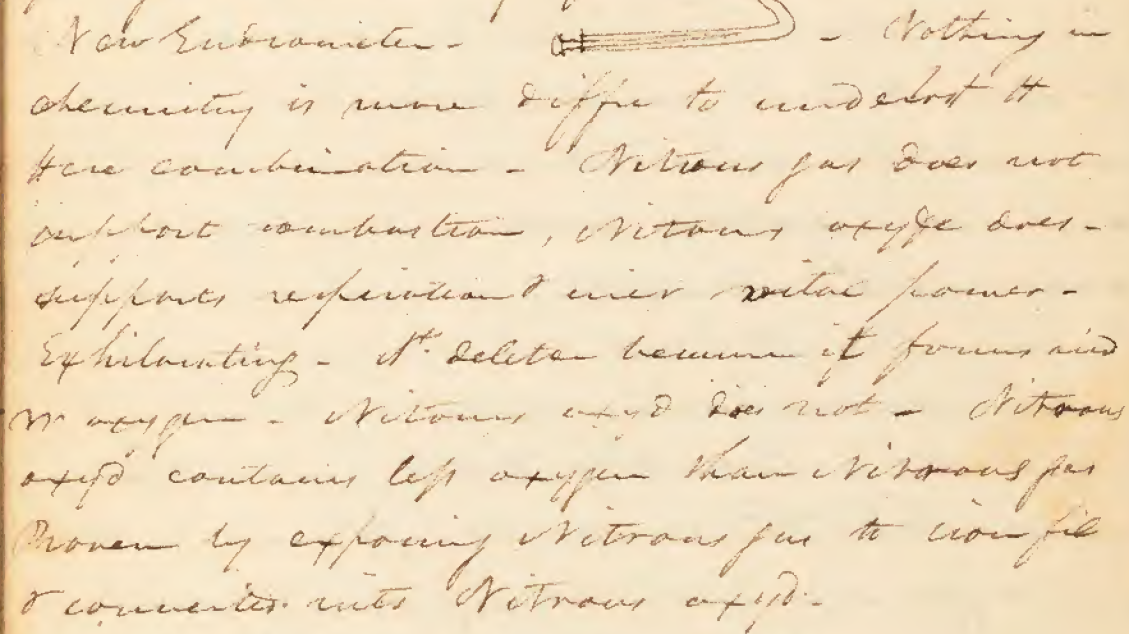 New Eudiometer - - Nothing in
chemistry is more diffic to underst th
these combination - Nitrous gas does not
support combustion, Nitous oxyde does -
supports respiration & incr vital power -
Exhilarating - deleter becaue it forms acid
w oxygen - Nitous oxyd does not - Nitrous
oxyd contains less oxygen than Nitrous gas
Proven by exposing Nitrous gas to iron fil
& converted into Nitrous oxyd -